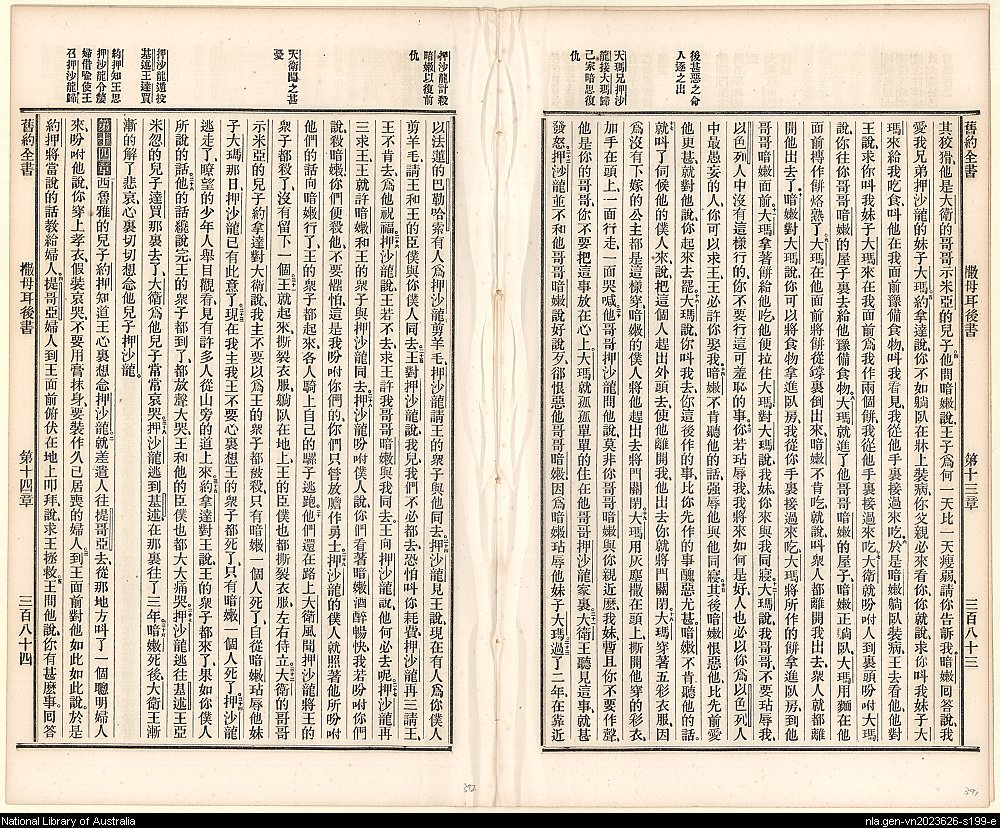 後甚惡之命
人逐之出
大瑪兄押沙
龍接大瑪歸
己家暗思復
仇
舊約全書 撒母耳後書 第十三章 三百八十三
其狡猾、他是大衛的哥哥示米亞的兒子他問暗嫩說王子爲何一天比一天瘦弱請你告訴我暗嫩囘答說我
愛我兄弟押沙龍的妹子大瑪約拿達說你不如躺臥在牀上裝病你父親必來看你你就說求你叫我妹子大
瑪來給我吃食叫他在我面前豫備食物叫我看見我從他手裏接過來吃於是暗嫩躺臥裝病王去看他他對
王說求你叫我妹子大瑪來在我面前爲我作兩個餅我從他手裏接過來吃大衛就吩咐人到裏頭吩咐大瑪
說你往你哥哥暗嫩的屋子裏去給他豫備食物大瑪就進了他哥哥暗嫩的屋子暗嫩正躺臥大瑪用麵在他
面前摶作餅烙熟了大瑪在他面前將餅從裏倒出來暗嫩不肯吃就說叫衆人都離開我出去衆人就都離
開他出去了暗嫩對大瑪說你可以將食物拿進臥房我從你手裏接過來吃大瑪將所作的餅拿進臥房到他
哥哥暗嫩面前大瑪拿著餅給他吃他便拉住大瑪對大瑪說我妹你來與我同寢大瑪說我哥哥不要玷辱我
以色列人中沒有這樣行的你不要行這可羞恥的事你若玷辱我我將來如何是好人也必以你爲以色列人
中最愚妄的人你可以求王王必許你娶我暗嫩不肯聽他的話强辱他與他同寢其後暗嫩恨惡他比先前愛
他更甚就對他說你起來去罷大瑪說你叫我去你這後作的事比你先作的事醜惡尤甚暗嫩不肯聽他的話
就叫了伺候他的僕人來說把這個人趕出外頭去使他離開我他出去你就將門關閉大瑪穿著五彩衣服因
爲沒有下嫁的公主都是這樣穿暗嫩的僕人將他趕出去將門關閉大瑪用灰塵撒在頭上撕開他穿的彩衣
加手在頭上一面行走一面哭喊他哥哥押沙龍問他說莫非你哥哥暗嫩與你親近麽我妹暫且你不要作聲
他是你的哥哥你不要把這事放在心上大瑪就孤孤單單的住在他哥哥押沙龍家裏大衛王聽見這事就甚
發怒押沙龍並不和他哥哥暗嫩說好說歹卻恨惡他哥哥暗嫩因爲暗嫩玷辱他妹子大瑪過了二年在靠近
押沙龍計殺
暗嫩以復前
仇
大衛聞之甚
憂
押沙龍遁投
基述王達買
約押知王思
押沙龍令嫠
婦借喻使王
召押沙龍歸
以法蓮的巴勒哈索有人爲押沙龍剪羊毛押沙龍請王的衆子與他同去押沙龍見王說現在有人爲你僕人
剪羊毛請王和王的臣僕與你僕人同去王對押沙龍說我兒我們不必都去恐怕叫你耗費押沙龍再三請王
王不肯去爲他祝福押沙龍說王若不去求王許我哥哥暗嫩與我同去王向押沙龍說他何必去呢押沙龍再
三求王王就許暗嫩和王的衆子與押沙龍同去押沙龍吩咐僕人說你們看著暗嫩酒醉暢快我若吩咐你們
說殺暗嫩你們便殺他不要懼怕這是我吩咐你們的你們只管放膽作勇士押沙龍的僕人就照著他所吩咐
他們的話向暗嫩行了王的衆子都起來各人騎上自己的騾子逃跑他們還在路上大衛風聞押沙龍將王的
衆子都殺了沒有留下一個王就起來撕裂衣服躺臥在地上王的臣僕也都撕裂衣服左右侍立大衛的哥哥
示米亞的兒子約拿達對大衛說我主不要以爲王的衆子都被殺只有暗嫩一個人死了自從暗嫩玷辱他妹
子大瑪那日押沙龍已有此意了現在我主我王不要心裏想王的衆子都死了只有暗嫩一個人死了押沙龍
逃走了瞭望的少年人舉目觀看見有許多人從山旁的道上來約拿達對王說王的衆子都來了果如你僕人
所說的話他的話纔說完王的衆子都到了都放聲大哭王和他的臣僕也都大大痛哭押沙龍逃往基述王亞
米忽的兒子達買那裏去了大衛爲他兒子常常哀哭押沙龍逃到基述在那裏住了三年暗嫩死後大衛王漸
漸的解了悲哀心裏切切想念他兒子押沙龍
第十四章西魯雅的兒子約押知道王心裏想念押沙龍就差遣人往提哥亞去從那地方叫了一個聰明婦人
來吩咐他說你穿上孝衣假裝哀哭不要用膏抹身要裝作久已居喪的婦人到王面前對他如此如此說於是
約押將當說的話教給婦人提哥亞婦人到王面前俯伏在地上叩拜說求王拯救王問他說你有甚麼事囘答
舊約全書 撒母耳後書 第十四章 三百八十四
392
391
National Library of Australia
nla.gen-vn2023626-s199-e